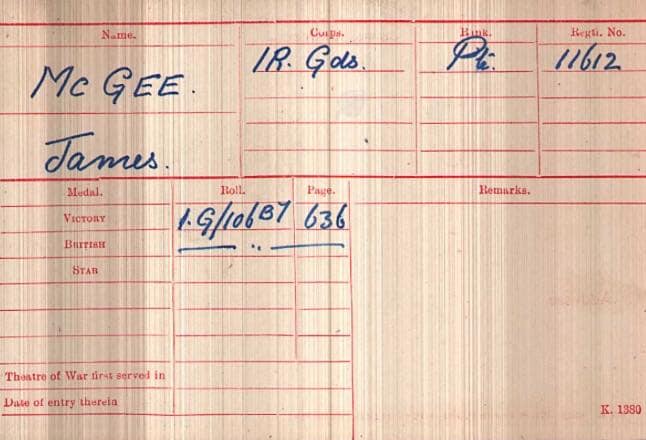 Name. Corps. Rank. Regtl. No.
McGEE. IR. Gds. Pte. 11612
James.
Medal. Roll. Page. Remarks.
VICTORY I.G/106B7 636
BRITISH — „ —
STAR
Theatre of War first served in
Date of entry therein
K. 1380